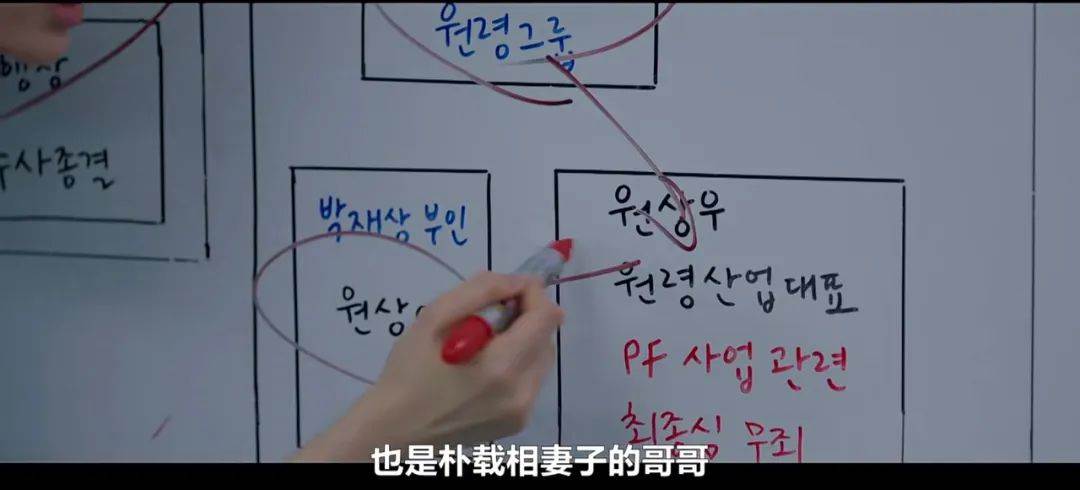 원령그룹
행상
수사종결
박재상 부인
원상
원상우
원령산업 대표
PF 사업 관련
최종심 무죄
也是朴载相妻子的哥哥